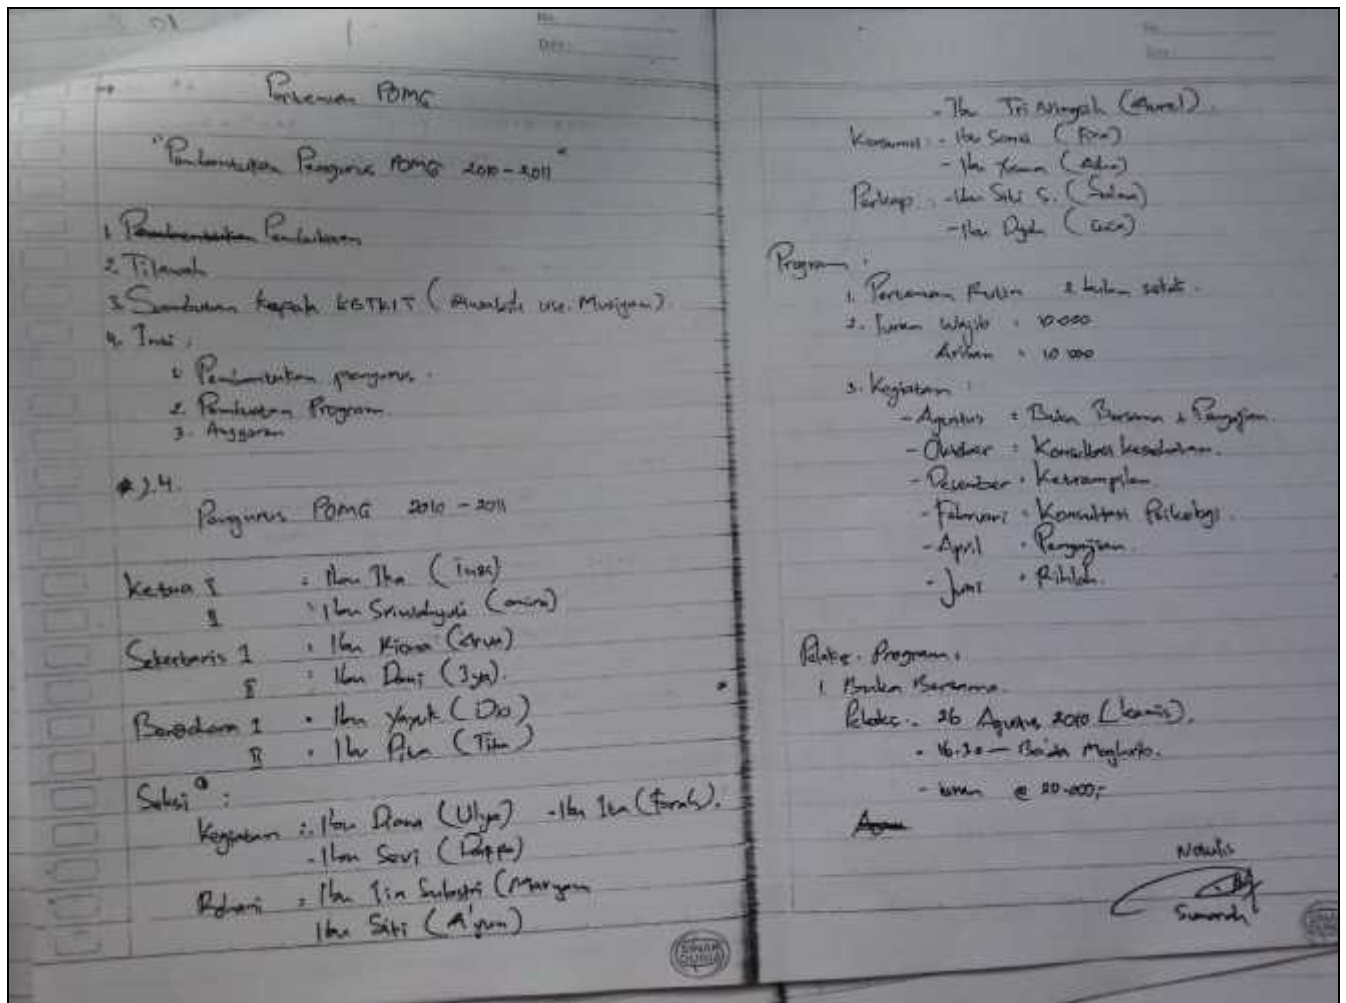 No.
Date:
Pertemuan POMG
"Pembentukan Pengurus POMG 2010-2011"
1. Pembentukan Pembukaan
2. Tilawah
3. Sambutan Kepala KBTKIT ( use. )
4. Inti :
1. Pembentukan pengurus.
2. Pembuatan Program.
3. Anggaran
).4.
Pengurus POMG 2010 - 2011
Ketua I : Ibu Ika ( )
II : Ibu Sriwahyuti ( )
Sekertaris 1 : Ibu Riana ( )
II : Ibu Dewi ( ).
Bendahara 1 : Ibu Yayuk ( )
II : Ibu ( )
Seksi :
Kegiatan : - Ibu Diana (Ulya) - Ibu ( ).
- Ibu Sevi ( )
Rohani : Ibu Iin Sulastri (Maryam
Ibu Siti (A'yun)
SINAR DUNIA
No.
Date:
- Ibu Tri Ningsih ( ).
Konsumsi : - Ibu ( )
- Ibu ( )
Perkap : - Ibu Siti S. (Salma)
- Ibu ( )
Program :
1. Pertemuan Rutin 2 bulan sekali.
2. Iuran Wajib : 10.000
Arisan : 10.000
3. Kegiatan :
- Agustus : Buka Bersama & Pengajian.
- Oktober : Konsultasi kesehatan.
- Desember : Ketrampilan
- Februari : Konsultasi Psikologi.
- April : Pengajian.
- Juni : Rihlah.
Pelaks. Program :
1. Buka Bersama.
Pelaks : - 26 Agustus 2010 (kamis).
- 16.30 - Ba'da Maghrib.
- Iuran @ 20.000,-
Notulis